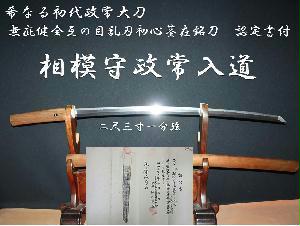 希なる初代政常大刀
無疵健全互の目乱刃初心茎在銘刀　認定書付
相模守政常入道
二尺三寸一分強